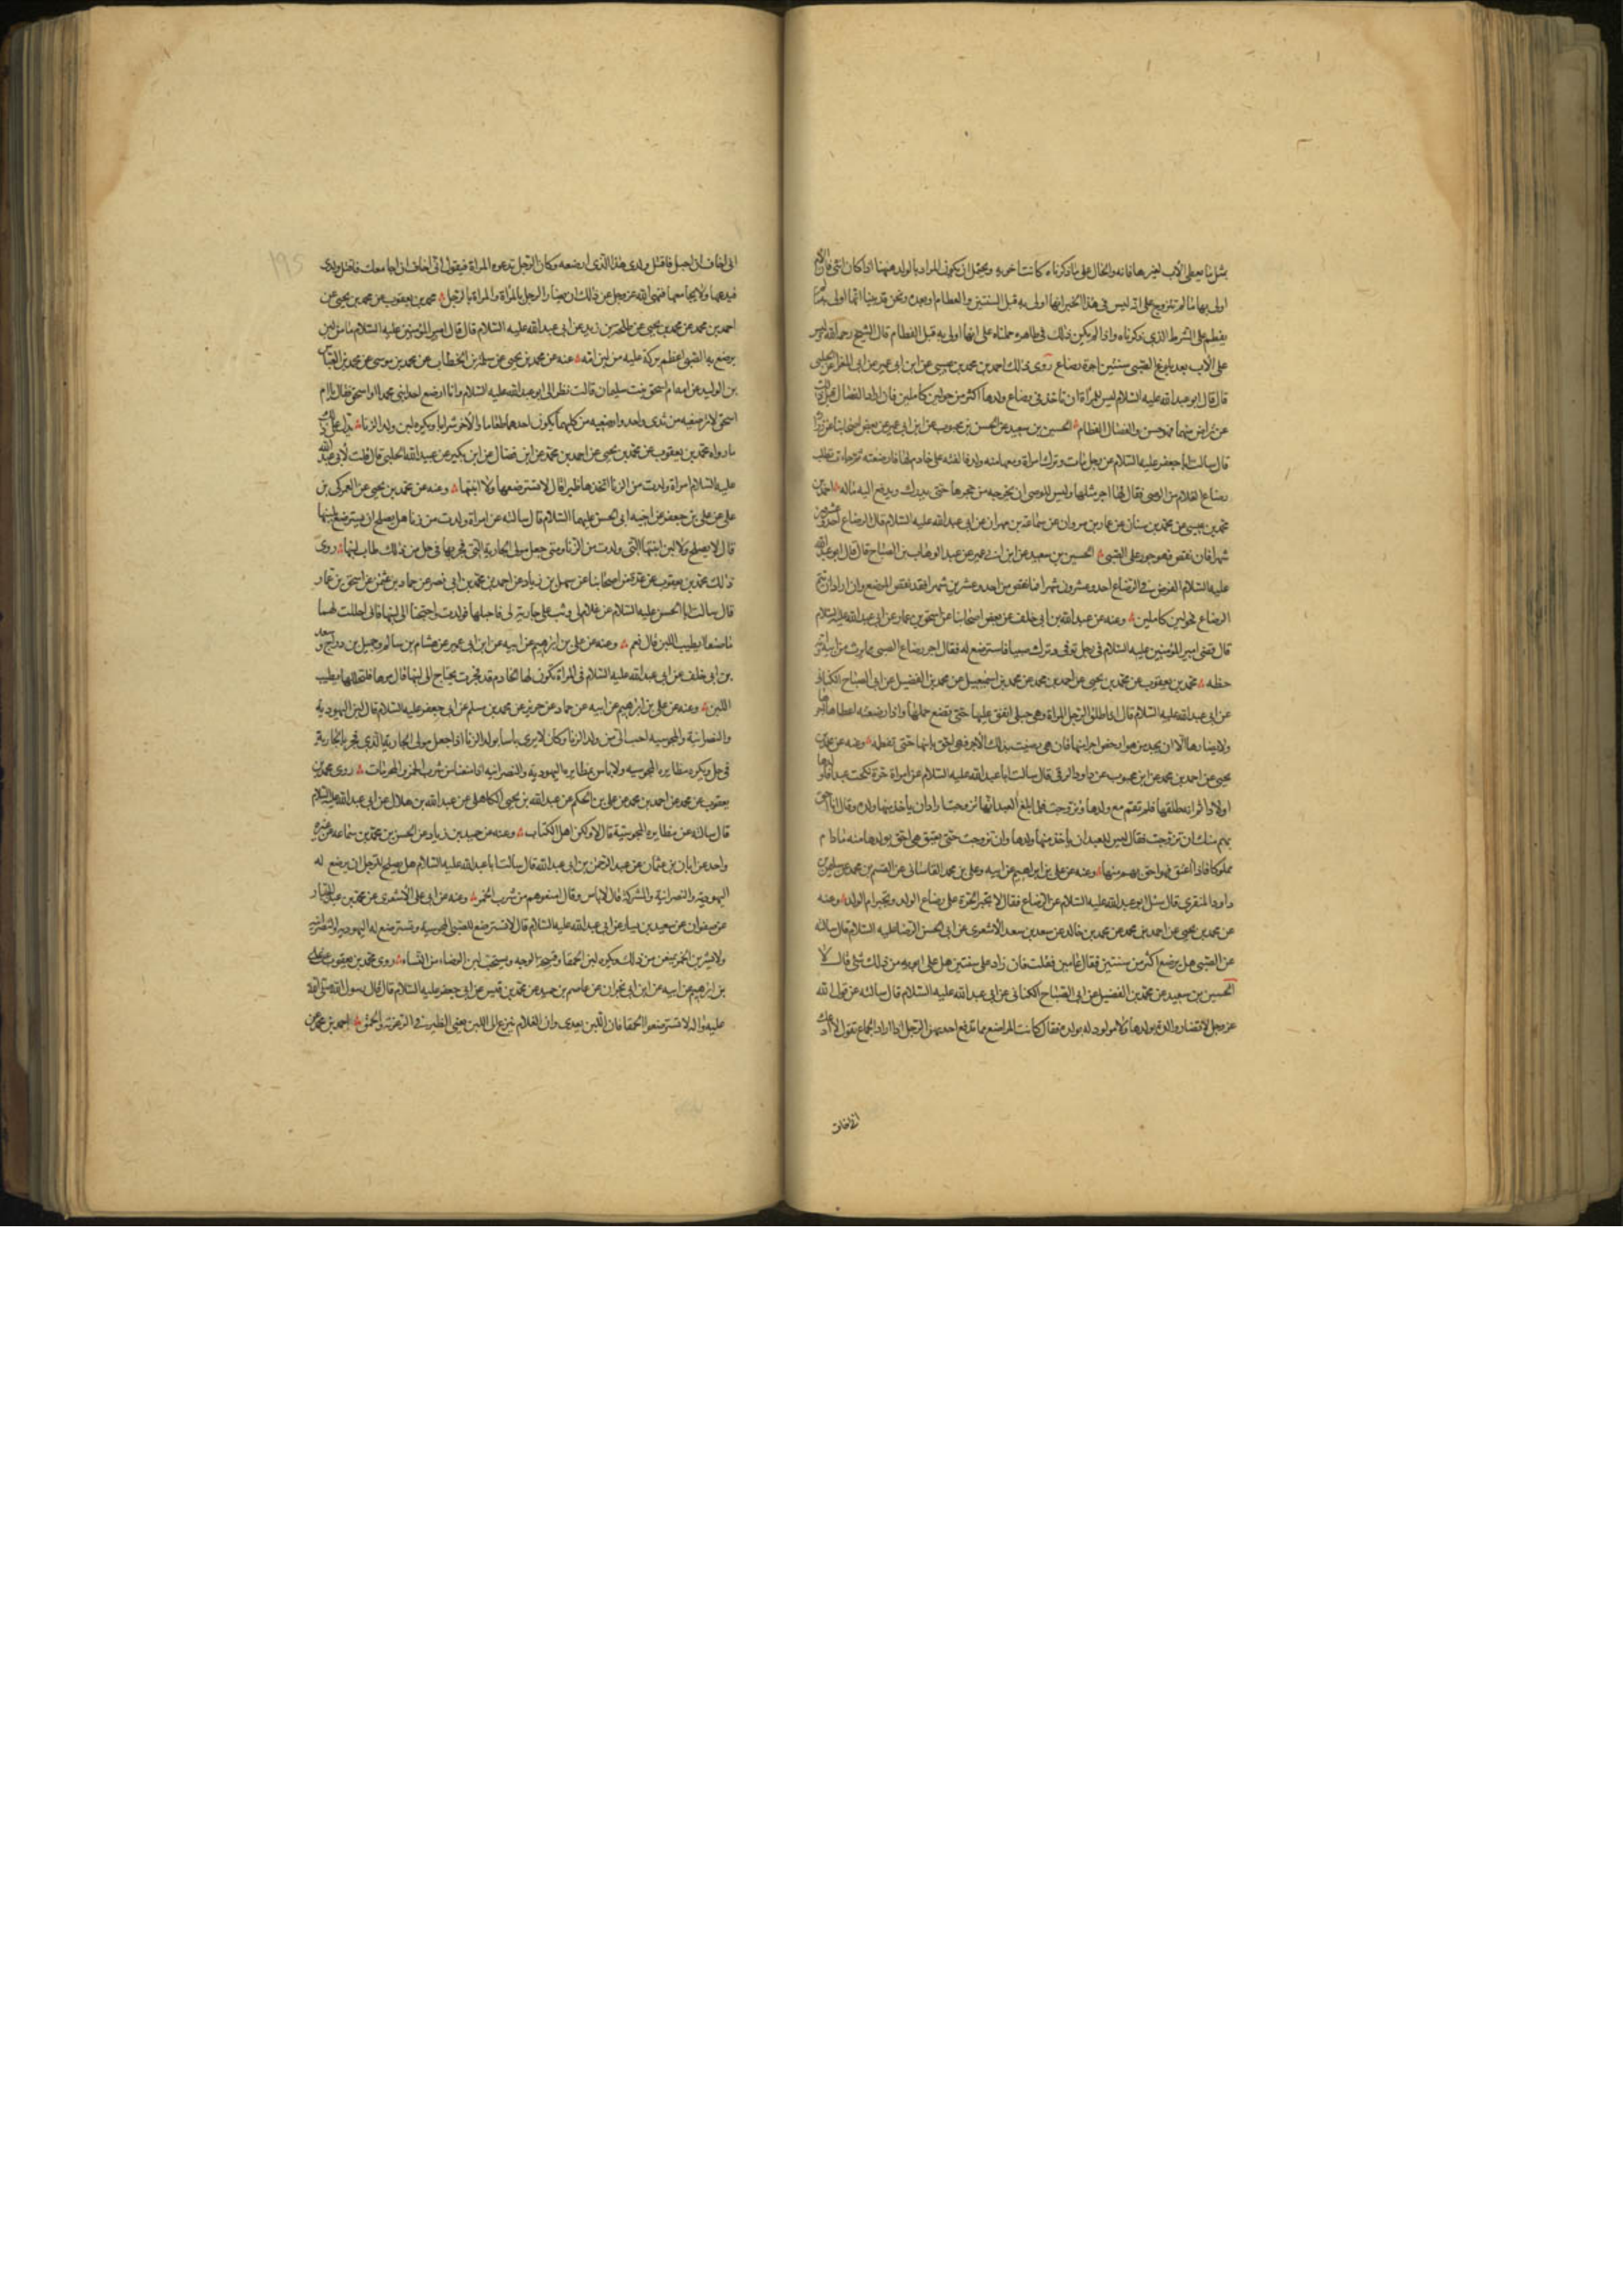 بمثل ما يعطى الأب لغيرها فانه والحال على ما ذكرناه كانت اخرى ويحتمل ان يكون المراد بالولد ههنا اذا كان انثى فان الام
اولى بها ما لم تتزوج على انه ليس في هذا الخبر انها اولى به قبل السنتين والفطام او بعده ونحن قد بينا انها اولى به ما لم
يفطم على الشرط الذي ذكرناه واذا لم يكن ذلك في ظاهره حملناه على انها اولى به قبل الفطام قال الشيخ رحمه الله وليس
على الأب بعد بلوغ الصبي سنتين اجرة رضاع روى ذلك احمد بن محمد بن عيسى عن ابن ابي عمير عن ابي المغرا عن الحلبى
قال قال ابو عبد الله عليه السلام ليس للمرأة ان تاخذ في رضاع ولدها اكثر من حولين كاملين فان ارادا الفصال قبل ذلك
عن تراض منهما فهو حسن والفصال الفطام الحسين بن سعيد عن الحسن بن محبوب عن ابن ابي عمير عن بعض اصحابنا عن زرارة
قال سالت ابا جعفر عليه السلام عن رجل مات وترك امراة ومعها منه ولد فالقته على خادم لها فارضعته ثم جاءت تطلب
رضاع الغلام من الوصى فقال لها اجر مثلها وليس للوصى ان يخرجه من حجرها حتى يدرك ويدفع اليه ماله احمد بن
محمد بن عيسى عن محمد بن سنان عن عمار بن مروان عن سماعة بن مهران عن ابى عبد الله عليه السلام قال الرضاع احد وعشرون
شهرا فان نقص فهو جور على الصبى الحسين بن سعيد عن ابن ابي عمير عن عبد الوهاب بن الصباح قال قال ابو عبد الله
عليه السلام الفرض في الرضاع احد وعشرون شهرا فما نقص من احد وعشرين شهرا فقد نقص المرضع وان اراد ان يتم
الرضاع فحولين كاملين وعنه عن عبد الله بن ابى خلف عن بعض اصحابنا عن اسحق بن عمار عن ابى عبد الله عليه السلام
قال قضى امير المؤمنين عليه السلام في رجل توفى وترك صبيا فاسترضع له فقال اجر رضاع الصبى مما يرث من ابيه وامه
حظه محمد بن يعقوب عن محمد بن يحيى عن احمد بن محمد عن محمد بن اسمعيل عن محمد بن الفضيل عن ابى الصباح الكنانى
عن ابى عبد الله عليه السلام قال اذا طلق الرجل المراة وهى حبلى انفق عليها حتى تضع حملها واذا ارضعته اعطاها اجرها
ولا يضارها الا ان يجد من هو ارخص اجرا منها فان هى رضيت بذلك الاجر فهى احق بابنها حتى تفطمه وعنه عن محمد بن
يحيى عن احمد بن محمد عن ابن محبوب عن داود الرقى قال سالت ابا عبد الله عليه السلام عن امراة حرة نكحت عبدا فاولدها
اولادا ثم انه طلقها فلم تقم مع ولدها وتزوجت فلما بلغ العبد انها تزوجت اراد ان ياخذ منها ولده وقال انا احق
بهم منك ان تزوجت فقال ليس للعبد ان ياخذ منها ولدها وان تزوجت حتى يعتق هى احق بولدها منه ما دام
مملوكا فاذا اعتق فهو احق بهم منها وعنه عن على بن ابراهيم عن ابيه وعلى بن محمد القاسانى عن القسم بن محمد عن سليمن بن
داود المنقرى قال سئل ابو عبد الله عليه السلام عن الرضاع فقال لا تجبر الحرة على رضاع الولد وتجبر ام الولد وعنه
عن محمد بن يحيى عن احمد بن محمد عن محمد بن خالد عن سعد بن سعد الأشعرى عن ابى الحسن الرضا عليه السلام قال سالته
عن الصبى هل يرضع اكثر من سنتين فقال عامين فقلت فان زاد على سنتين هل على ابويه من ذلك شئ قال لا
الحسين بن سعيد عن محمد بن الفضيل عن ابى الصباح الكنانى عن ابى عبد الله عليه السلام قال سالته عن قول الله
عز وجل لا تضار والدة بولدها ولا مولود له بولده فقال كانت المراضع مما تدفع احديهن الرجل اذا اراد الجماع تقول لا ادعك
انى اخاف
انى اخاف ان احبل فاقتل ولدى هذا الذى ارضعه وكان الرجل تدعوه المراة فيقول انى اخاف ان اجامعك فاقتل ولدى
فيدعها ولا يجامعها فنهى الله عز وجل عن ذلك ان يضار الرجل بالمرأة والمراة بالرجل محمد بن يعقوب عن محمد بن يحيى عن
احمد بن محمد عن محمد بن يحيى عن طلحة بن زيد عن ابى عبد الله عليه السلام قال قال امير المؤمنين عليه السلام ما من لبن
يرضع به الصبى اعظم بركة عليه من لبن امه عنه عن محمد بن يحيى عن سلمة بن الخطاب عن محمد بن موسى عن محمد بن العباس
بن الوليد عن ابيه عن امه ام اسحق بنت سليمان قالت نظر الى ابو عبد الله عليه السلام وانا ارضع احد ابنى محمد او اسحق فقال يا ام
اسحق لا ترضعيه من ثدى واحد وارضعيه من كليهما يكون احدهما طعاما والآخر شرابا ويكره لبن ولد الزنا يدل على ذلك
ما رواه محمد بن يعقوب عن محمد بن يحيى عن احمد بن محمد عن ابن فضال عن ابن بكير عن عبيد الله الحلبى قال قلت لأبى عبد الله
عليه السلام امراة ولدت من الزنا اتخذها ظئرا قال لا تسترضعها ولا ابنتها وعنه عن محمد بن يحيى عن العمركى بن
على عن على بن جعفر عن اخيه ابى الحسن عليهما السلام قال سالته عن امراة ولدت من زنا هل يصلح ان يسترضع لبنها
قال لا يصلح ولا لبن ابنتها التى ولدت من الزنا ومتى جعل مولى الجارية التى فجر بها في حل من ذلك طاب لبنها روى
ذلك محمد بن يعقوب عن عدة من اصحابنا عن سهل بن زياد عن احمد بن محمد بن ابى نصر عن حماد بن عثمن عن اسحق بن عمار
قال سالت ابا الحسن عليه السلام عن غلام لى وثب على جارية لى فاحبلها فولدت واحتجنا الى لبنها فانى احللت لهما
ما صنعا ايطيب اللبن قال نعم وعنه عن على بن ابرهيم عن ابيه عن ابن ابى عمير عن هشام بن سالم وجميل بن دراج وسعد
بن ابى خلف عن ابى عبد الله عليه السلام في المراة تكون لها الخادم قد فجرت يحتاج الى لبنها قال مرها فلتحللها يطيب
اللبن وعنه عن على بن ابرهيم عن ابيه عن حماد عن حريز عن محمد بن مسلم عن ابى جعفر عليه السلام قال لبن اليهودية
والنصرانية والمجوسية احب الى من ولد الزنا وكان لا يرى باسا بولد الزنا اذا جعل مولى الجارية الذى فجر بالجارية
في حل ويكره مظايرة المجوسية ولا باس بمظايرة اليهودية والنصرانية اذا منعتا من شرب الخمر والمحرمات روى محمد بن
يعقوب عن محمد عن احمد بن محمد عن على بن الحكم عن عبد الله بن يحيى الكاهلى عن عبد الله بن هلال عن ابى عبد الله عليه السلام
قال سالته عن مظايرة المجوسية قال لا ولكن اهل الكتاب وعنه عن حميد بن زياد عن الحسن بن محمد بن سماعة عن غير
واحد عن ابان بن عثمان عن عبد الرحمن بن ابى عبد الله قال سالت ابا عبد الله عليه السلام هل يصلح للرجل ان يرضع له
اليهودية والنصرانية والمشركة قال لا باس وقال امنعوهم من شرب الخمر وعنه عن ابى على الأشعرى عن محمد بن عبد الجبار
عن صفوان عن سعيد بن يسار عن ابى عبد الله عليه السلام قال لا تسترضع للصبى المجوسية وتسترضع له اليهودية والنصرانية
ولا يشربن الخمر يمنعن من ذلك ويكره لبن الحمقا وقبيحة الوجه ويستحب لبن الوضاء من النساء روى محمد بن يعقوب عن على
بن ابرهيم عن ابيه عن ابن ابى نجران عن عاصم بن حميد عن محمد بن قيس عن ابى جعفر عليه السلام قال قال رسول الله صلى الله
عليه واله لا تسترضعوا الحمقا فان اللبن يعدى وان الغلام ينزع الى اللبن يعنى الظئر في الرعونة والحمق احمد بن محمد عن